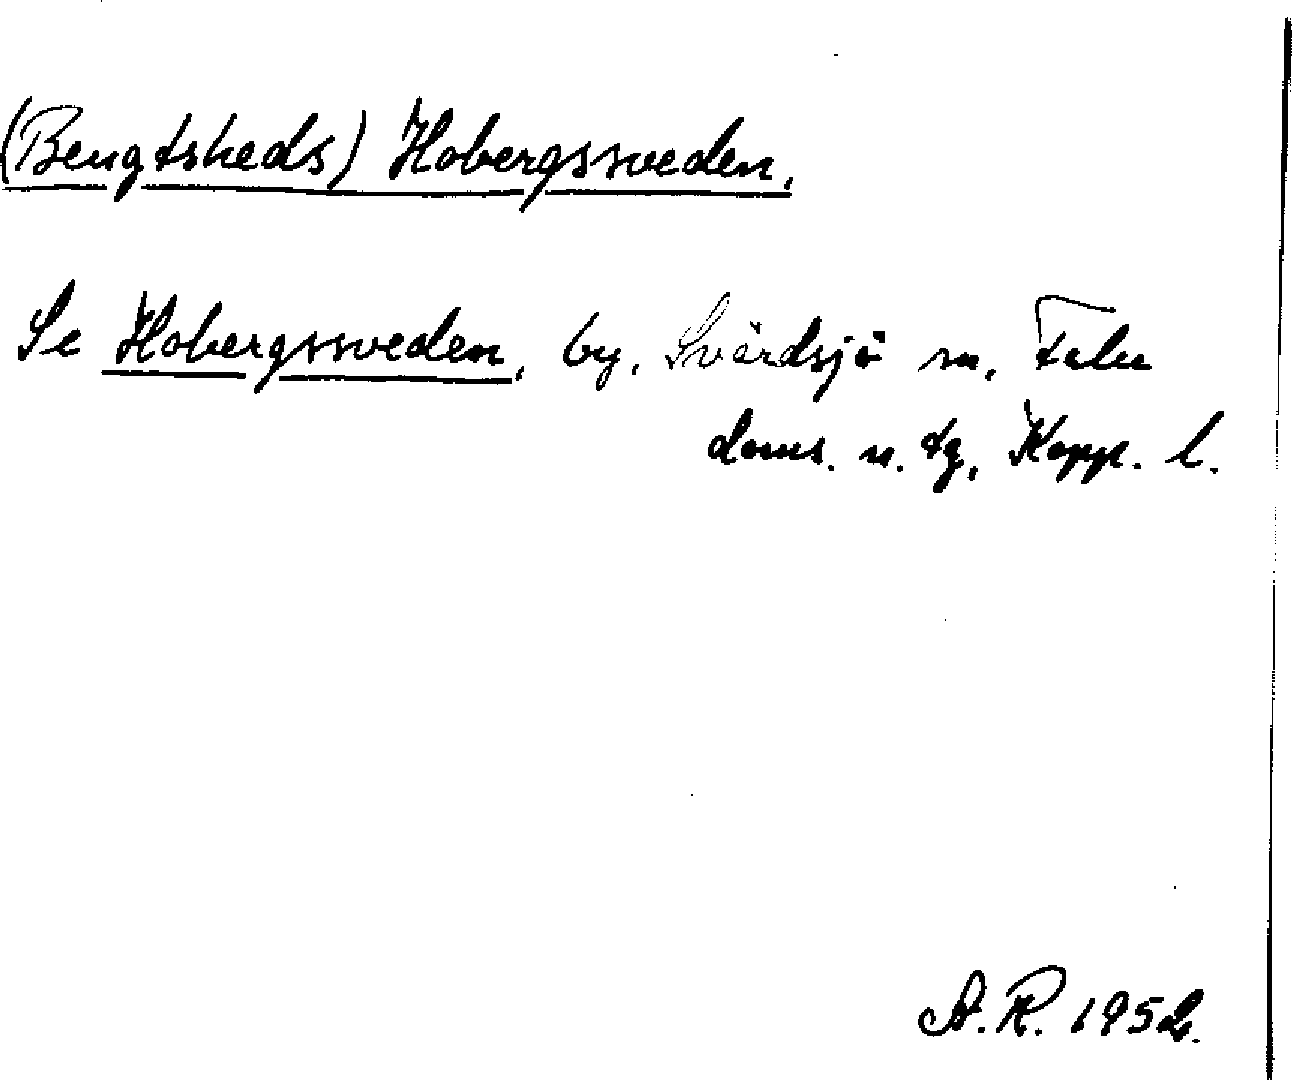 (Bengtsheds) Hobergssveden,
Se Hobergssveden, by, Svärdsjö sn, Falu
doms. n. tg, Kopp. l.
A.R. 1952.